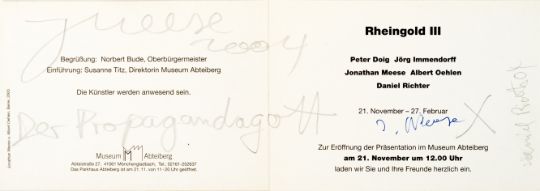 Meese
2004
Begrüßung: Norbert Bude, Oberbürgermeister
Einführung: Susanne Titz, Direktorin Museum Abteiberg
Die Künstler werden anwesend sein.
Der Propagandagott
Museum Abteiberg
Abteistraße 27, 41061 Mönchengladbach, Tel.: 02161-252637
Das Parkhaus Abteiberg ist am 21. 11. von 11–20 Uhr geöffnet.
Rheingold III
Peter Doig Jörg Immendorff
Jonathan Meese Albert Oehlen
Daniel Richter
21. November – 27. Februar
J. Meese X
Zur Eröffnung der Präsentation im Museum Abteiberg
am 21. November um 12.00 Uhr
laden wir Sie und Ihre Freunde herzlich ein.